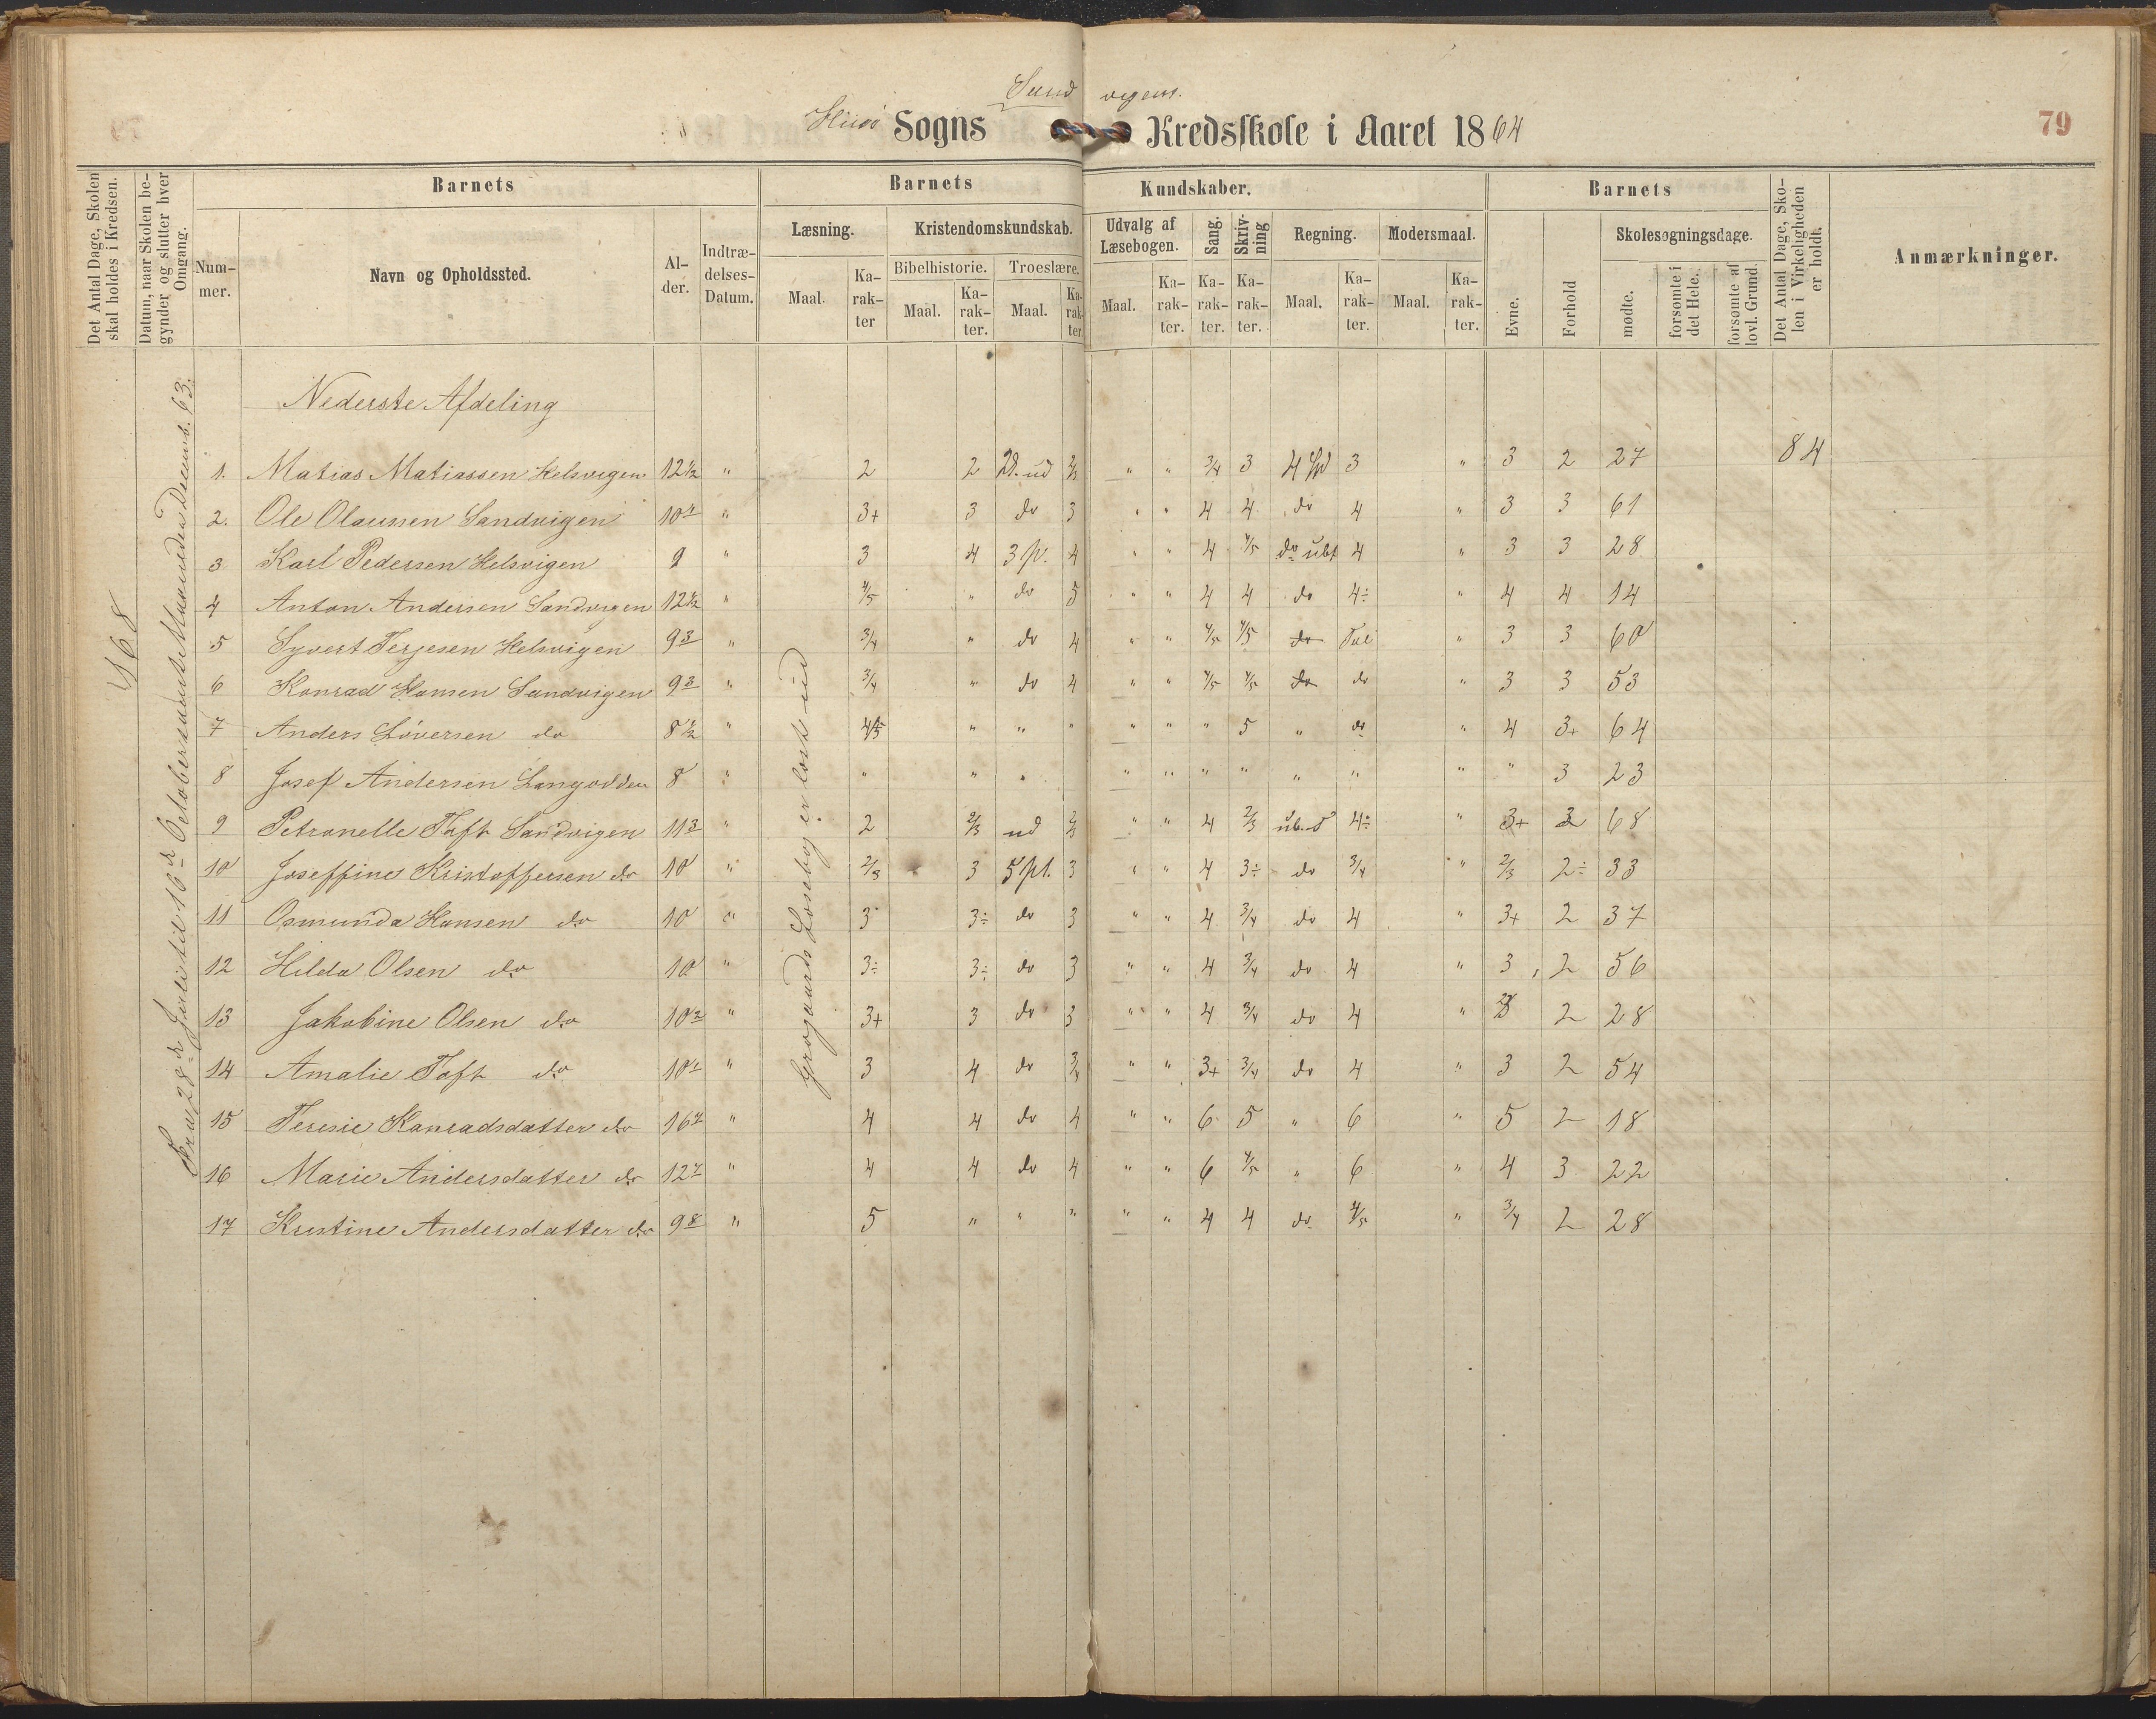 Sandvigens
Hisø Sogns Kredsskole i Aaret 1864
79
Det Antal Dage, Skolen skal holdes i Kredsen.
Datum, naar Skolen begynder og slutter hver Omgang.
Barnets
Barnets Kundskaber.
Barnets
Det Antal Dage, Skolen i Virkeligheden er holdt.
Anmærkninger.
Nummer.
Navn og Opholdssted.
Alder.
Indtrædelses-Datum.
Læsning.
Kristendomskundskab.
Udvalg af Læsebogen.
Sang.
Skrivning
Regning.
Modersmaal.
Evne.
Forhold
Skolesøgningsdage.
Bibelhistorie.
Troeslære.
Maal. Karakter
Maal. Karakter.
Maal. Karakter
Maal. Karakter.
Karakter.
Karakter.
Maal. Karakter.
Maal. Karakter.
mødte.
forsømte i det Hele.
forsømte af lovl. Grund.
468
Fra 28de Juli til 16de Oktober samt Maaneden Decemb. 63.
Grøgaards Læsebog er læst ud
Nederste Afdeling
1. Matias Matiassen Helsvigen 12½ " 2 2 ud 2/3 " " 3/4 3 3 " 3 2 27 84
2. Ole Olaussen Sandvigen " 3+ 3 do 3 " " 4 4 do 4 " 3 3 61
3 Karl Pedersen Helsvigen 9 " 3 4 3 p. 4 " " 4 4/5 do ubt 4 " 3 3 28
4 Anton Andersen Sandvigen 12½ " 4/5 " do 5 " " 4 4 do 4÷ " 4 4 14
5 Syvert Terjesen Helsvigen 9 3 " 3/4 " do 4 " " 4/5 4/5 do Tal " 3 3 60
6 Konrad Hansen Sandvigen 9 3 " 3/4 " do 4 " " 4/5 4/5 do do " 3 3 53
7 Anders Løversen do 8½ " 4/5 " " " " " " 5 " do " 4 3+ 64
8 Josef Andersen Langodden 8 " " " " " " " " " " " " 3 23
9 Petronelle Toft Sandvigen 11 3 " 2 2/3 ud 2/3 " " 4 2/3 4÷ " 3+ 2 68
10 Joseffine Kristoffersen do 10 " 2/3 3 5 pt. 3 " " 4 3÷ do 3/4 " 2/3 2÷ 33
11 Osmunda Hansen do 10 " 3 3÷ do 3 " " 4 3/4 do 4 " 3+ 2 37
12 Hilda Olsen do 10 " 3÷ 3÷ do 3 " " 4 3/4 do 4 " 3 2 56
13 Jakobine Olsen do " 3+ 3 do 3 " " 4 3/4 do 4 " 2 28
14 Amalie Toft do " 3 4 do 3/4 " " 3+ 3/4 do 4 " 3 2 54
15 Teresie Konradsdatter do " 4 4 do 4 " " 6 5 " 6 " 5 2 18
16 Marie Andersdatter do " 4 4 do 4 " " 6 4/5 " 6 " 4 3 22
17 Kristine Andersdatter do 9 8 " 5 " " " " " 4 4 do 4/5 " 3/4 2 28